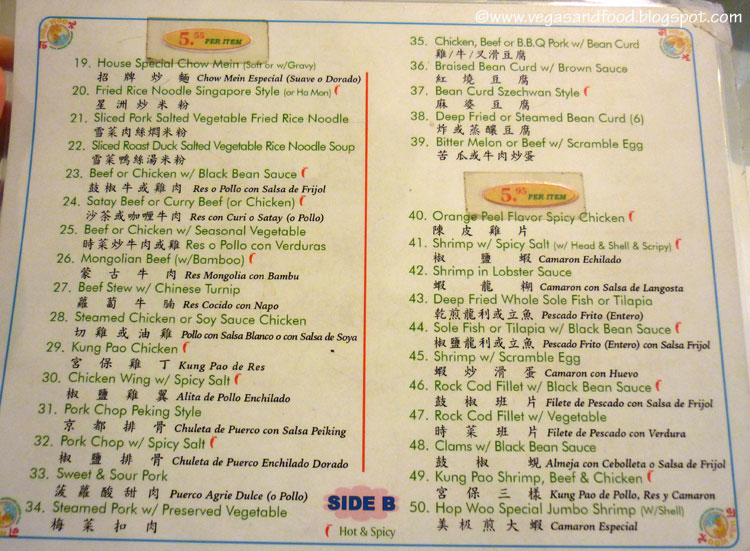 ©www.vegasandfood.blogspot.com
5.55 PER ITEM
19. House Special Chow Mein (Soft or w/Gravy)
招牌炒麵 Chow Mein Especial (Suave o Dorado)
20. Fried Rice Noodle Singapore Style (or Ha Mon)
星洲炒米粉
21. Sliced Pork Salted Vegetable Fried Rice Noodle
雪菜肉絲燜米粉
22. Sliced Roast Duck Salted Vegetable Rice Noodle Soup
雪菜鴨絲湯米粉
23. Beef or Chicken w/ Black Bean Sauce
鼓椒牛或雞肉 Res o Pollo con Salsa de Frijol
24. Satay Beef or Curry Beef (or Chicken)
沙茶或咖喱牛肉 Res con Curi o Satay (o Pollo)
25. Beef or Chicken w/ Seasonal Vegetable
時菜炒牛肉或雞 Res o Pollo con Verduras
26. Mongolian Beef (w/Bamboo)
蒙古牛肉 Res Mongolia con Bambu
27. Beef Stew w/ Chinese Turnip
蘿蔔牛腩 Res Cocido con Napo
28. Steamed Chicken or Soy Sauce Chicken
切雞或油雞 Pollo con Salsa Blanco o con Salsa de Soya
29. Kung Pao Chicken
宮保雞丁 Kung Pao de Res
30. Chicken Wing w/ Spicy Salt
椒鹽雞翼 Alita de Pollo Enchilado
31. Pork Chop Peking Style
京都排骨 Chuleta de Puerco con Salsa Peiking
32. Pork Chop w/ Spicy Salt
椒鹽排骨 Chuleta de Puerco Enchilado Dorado
33. Sweet & Sour Pork
菠蘿酸甜肉 Puerco Agrie Dulce (o Pollo)
34. Steamed Pork w/ Preserved Vegetable
梅菜扣肉
SIDE B
Hot & Spicy
35. Chicken, Beef or B.B.Q Pork w/ Bean Curd
雞/牛/叉滑豆腐
36. Braised Bean Curd w/ Brown Sauce
紅燒豆腐
37. Bean Curd Szechwan Style
麻婆豆腐
38. Deep Fried or Steamed Bean Curd (6)
炸或蒸釀豆腐
39. Bitter Melon or Beef w/ Scramble Egg
苦瓜或牛肉炒蛋
5.95 PER ITEM
40. Orange Peel Flavor Spicy Chicken
陳皮雞片
41. Shrimp w/ Spicy Salt (w/ Head & Shell & Scripy)
椒鹽蝦 Camaron Echilado
42. Shrimp in Lobster Sauce
蝦龍糊 Camaron con Salsa de Langosta
43. Deep Fried Whole Sole Fish or Tilapia
乾煎龍利或立魚 Pescado Frito (Entero)
44. Sole Fish or Tilapia w/ Black Bean Sauce
椒鹽龍利或立魚 Pescado Frito (Entero) con Salsa Frijol
45. Shrimp w/ Scramble Egg
蝦炒滑蛋 Camaron con Huevo
46. Rock Cod Fillet w/ Black Bean Sauce
鼓椒班片 Filete de Pescado con Salsa de Frijol
47. Rock Cod Fillet w/ Vegetable
時菜班片 Filete de Pescado con Verdura
48. Clams w/ Black Bean Sauce
鼓椒蜆 Almeja con Cebolleta o Salsa de Frijol
49. Kung Pao Shrimp, Beef & Chicken
宮保三樣 Kung Pao de Pollo, Res y Camaron
50. Hop Woo Special Jumbo Shrimp (W/Shell)
美极煎大蝦 Camaron Especial